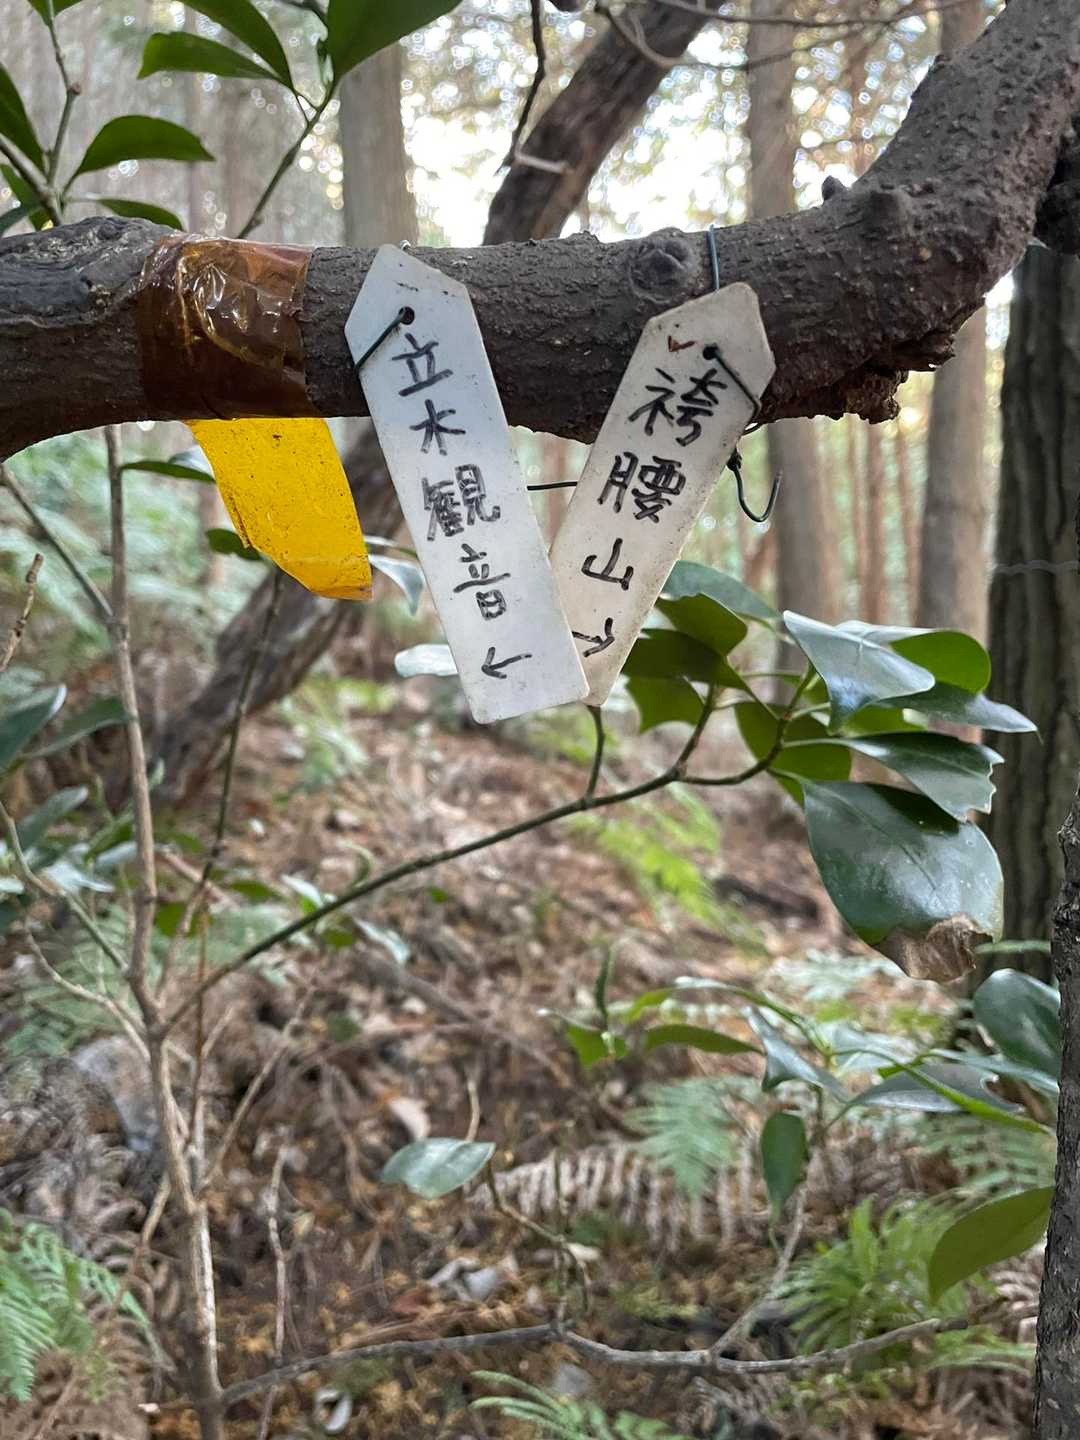 立木観音←
袴腰山→